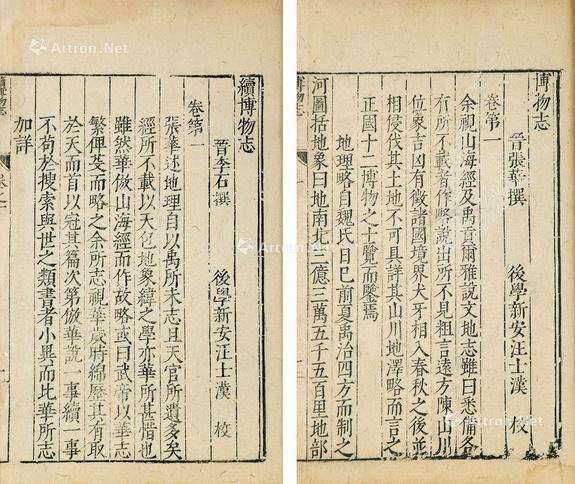 博物志
晉張華撰 後學新安汪士漢 校
卷第一
余視山海經及禹貢爾雅說文地志雖曰悉備各
有所不載者作略說出所不見粗言遠方陳山川
位象吉凶有徵諸國境界犬牙相入春秋之後並
相侵伐其土地不可具詳其山川地澤略而言之
正國十二博物之士覽而鑒焉
地理略自魏氏曰已前夏禹治四方而制之
河圖括地象曰地南北三億三萬五千五百里地部
續博物志
晉李石撰 後學新安汪士漢 校
卷第一
張華述地理自以禹所未志且天官所遺多矣
經所不載以天包地象緯之學亦華所甚惜也
雖然華倣山海經而作故略或曰武帝以華志
繁俾芟而略之余所志視華歲時綿歷其有取
於天而首以冠其篇次第倣華說一事續一事
不苟於搜索與世之類書者小異而比華所志
加詳
Artron.Net
Artron.Net
Artron.Net
Artron.Net